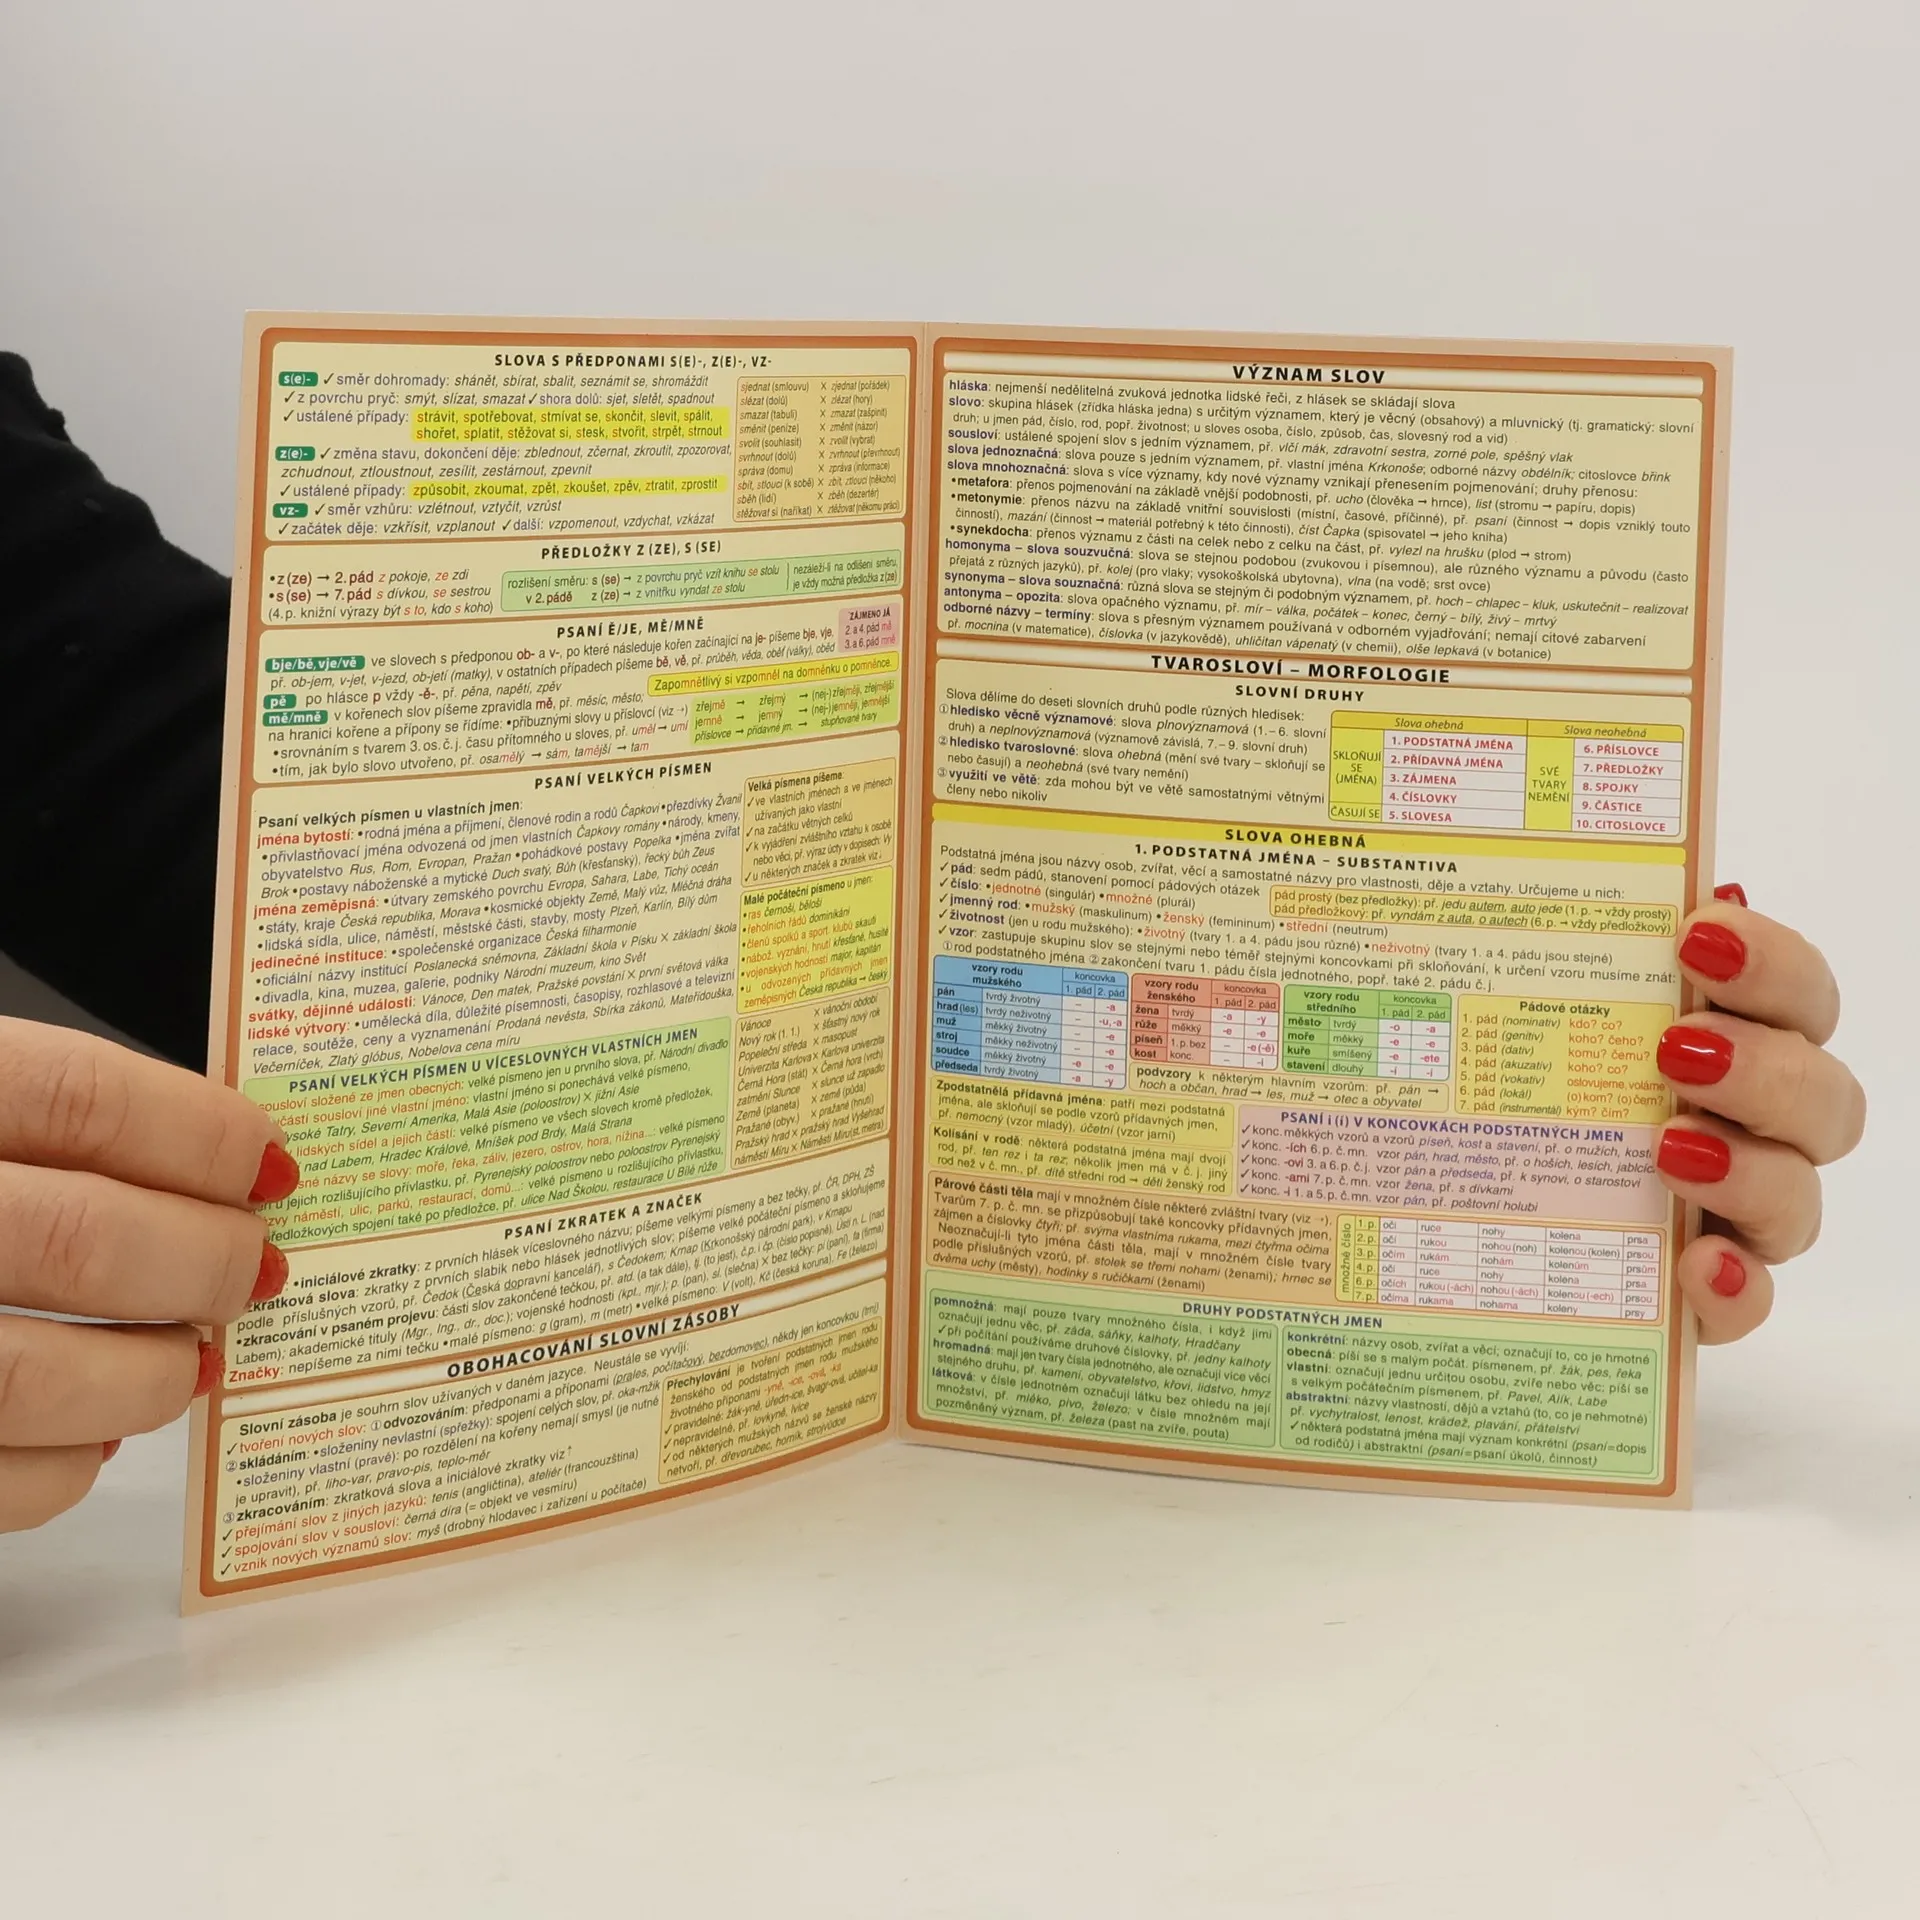 SLOVA S PŘEDPONAMI S(E)-, Z(E)-, VZ-
s(e)- ✓ směr dohromady: shánět, sbírat, sbalit, seznámit se, shromáždit
✓ z povrchu pryč: smýt, slízat, smazat ✓ shora dolů: sjet, sletět, spadnout
✓ ustálené případy: strávit, spotřebovat, stmívat se, skončit, slevit, spálit,
shořet, splatit, stěžovat si, stesk, stvořit, strpět, strnout
z(e)- ✓ změna stavu, dokončení děje: zblednout, zčernat, zkroutit, zpozorovat,
zchudnout, ztloustnout, zesílit, zestárnout, zpevnit
✓ ustálené případy: způsobit, zkoumat, zpět, zkoušet, zpěv, ztratit, zprostit
vz- ✓ směr vzhůru: vzlétnout, vztyčit, vzrůst
✓ začátek děje: vzkřísit, vzplanout ✓ další: vzpomenout, vzdychat, vzkázat
sjednat (smlouvu) X zjednat (pořádek)
slézat (dolů) X zlézat (hory)
smazat (tabuli) X zmazat (zašpinit)
směnit (peníze) X změnit (názor)
svolit (souhlasit) X zvolit (vybrat)
svrhnout (dolů) X zvrhnout (převrhnout)
správa (domu) X zpráva (informace)
sbít, stlouci (k sobě) X zbít, ztlouci (někoho)
sběh (lidí) X zběh (dezertér)
stěžovat si (naříkat) X ztěžovat (někomu práci)
PŘEDLOŽKY Z (ZE), S (SE)
•z (ze) → 2. pád z pokoje, ze zdi
•s (se) → 7. pád s dívkou, se sestrou
(4. p. knižní výrazy být s to, kdo s koho)
rozlišení směru: s (se) → z povrchu pryč vzít knihu se stolu
v 2. pádě z (ze) → z vnitřku vyndat ze stolu
nezáleží-li na odlišení směru,
je vždy možná předložka z (ze)
PSANÍ Ě/JE, MĚ/MNĚ
ZÁJMENO JÁ
2. a 4. pád mě
3. a 6. pád mně
bje/bě, vje/vě ve slovech s předponou ob- a v-, po které následuje kořen začínající na je- píšeme bje, vje,
př. ob-jem, v-jet, v-jezd, ob-jetí (matky), v ostatních případech píšeme bě, vě, př. průběh, věda, oběť (války), oběd
pě po hlásce p vždy -ě-, př. pěna, napětí, zpěv
Zapomnětlivý si vzpomněl na domněnku o pomněnce.
mě/mně v kořenech slov píšeme zpravidla mě, př. měsíc, město;
na hranici kořene a přípony se řídíme: •příbuznými slovy u příslovcí (viz →)
•srovnáním s tvarem 3. os. č. j. času přítomného u sloves, př. uměl → umí
•tím, jak bylo slovo utvořeno, př. osamělý → sám, tamější → tam
zřejmě → zřejmý → (nej-) zřejměji, zřejmější
jemně → jemný → (nej-) jemněji, jemnější
příslovce → přídavné jm. → stupňované tvary
PSANÍ VELKÝCH PÍSMEN
Psaní velkých písmen u vlastních jmen:
jména bytostí: •rodná jména a příjmení, členové rodin a rodů Čapkovi •přezdívky Žvanil
•přivlastňovací jména odvozená od jmen vlastních Čapkovy romány •národy, kmeny,
obyvatelstvo Rus, Rom, Evropan, Pražan •pohádkové postavy Popelka •jména zvířat
Brok •postavy náboženské a mytické Duch svatý, Bůh (křesťanský), řecký bůh Zeus
jména zeměpisná: •útvary zemského povrchu Evropa, Sahara, Labe, Tichý oceán
•státy, kraje Česká republika, Morava •kosmické objekty Země, Malý vůz, Mléčná dráha
•lidská sídla, ulice, náměstí, městské části, stavby, mosty Plzeň, Karlín, Bílý dům
jedinečné instituce: •společenské organizace Česká filharmonie
•oficiální názvy institucí Poslanecká sněmovna, Základní škola v Písku X základní škola
•divadla, kina, muzea, galerie, podniky Národní muzeum, kino Svět
svátky, dějinné události: Vánoce, Den matek, Pražské povstání X první světová válka
lidské výtvory: •umělecká díla, důležité písemnosti, časopisy, rozhlasové a televizní
relace, soutěže, ceny a vyznamenání Prodaná nevěsta, Sbírka zákonů, Mateřídouška,
Večerníček, Zlatý glóbus, Nobelova cena míru
Velká písmena píšeme:
✓ ve vlastních jménech a ve jménech
užívaných jako vlastní
✓ na začátku větných celků
✓ k vyjádření zvláštního vztahu k osobě
nebo věci, př. výraz úcty v dopisech: Vy
✓ u některých značek a zkratek viz ↓
Malé počáteční písmeno u jmen:
•ras černoši, běloši
•řeholních řádů dominikáni
•členů spolků a sport. klubů skauti
•nábož. vyznání, hnutí křesťané, husité
•vojenských hodností major, kapitán
•u odvozených přídavných jmen
zeměpisných Česká republika → český
Vánoce X vánoční období
Nový rok (1. 1.) X šťastný nový rok
Popeleční středa X masopust
Univerzita Karlova X Karlova univerzita
Černá Hora (stát) X Černá hora (vrch)
zatmění Slunce X slunce už zapadlo
Země (planeta) X země (půda)
Pražané (obyv.) X pražané (hnutí)
Pražský hrad X pražský hrad Vyšehrad
náměstí Míru X Náměstí Míru (st. metra)
PSANÍ VELKÝCH PÍSMEN U VÍCESLOVNÝCH VLASTNÍCH JMEN
sousloví složené ze jmen obecných: velké písmeno jen u prvního slova, př. Národní divadlo
součástí sousloví jiné vlastní jméno: vlastní jméno si ponechává velké písmeno,
Vysoké Tatry, Severní Amerika, Malá Asie (poloostrov) X jižní Asie
lidských sídel a jejich částí: velké písmeno ve všech slovech kromě předložek,
nad Labem, Hradec Králové, Mníšek pod Brdy, Malá Strana
sné názvy se slovy: moře, řeka, záliv, jezero, ostrov, hora, nížina...: velké písmeno
u jejich rozlišujícího přívlastku, př. Pyrenejský poloostrov nebo poloostrov Pyrenejský
zvy náměstí, ulic, parků, restaurací, domů...: velké písmeno u rozlišujícího přívlastku,
ředložkových spojení také po předložce, př. ulice Nad Školou, restaurace U Bílé růže
PSANÍ ZKRATEK A ZNAČEK
•iniciálové zkratky: z prvních hlásek víceslovného názvu; píšeme velkými písmeny a bez tečky, př. ČR, DPH, ZŠ
zkratková slova: zkratky z prvních slabik nebo hlásek jednotlivých slov; píšeme velké počáteční písmeno a skloňujeme
podle příslušných vzorů, př. Čedok (Česká dopravní kancelář), s Čedokem; Krnap (Krkonošský národní park), v Krnapu
•zkracování v psaném projevu: části slov zakončené tečkou, př. atd. (a tak dále), tj. (to jest), č.p. i čp. (číslo popisné), Ústí n. L. (nad
Labem); akademické tituly (Mgr., Ing., dr., doc.); vojenské hodnosti (kpt., mjr.); p. (pan), sl. (slečna) X bez tečky: pí (paní), fa (firma)
Značky: nepíšeme za nimi tečku •malé písmeno: g (gram), m (metr) •velké písmeno: V (volt), Kč (česká koruna), Fe (železo)
OBOHACOVÁNÍ SLOVNÍ ZÁSOBY
Slovní zásoba je souhrn slov užívaných v daném jazyce. Neustále se vyvíjí:
✓ tvoření nových slov: ① odvozováním: předponami a příponami (prales, počítačový, bezdomovec), někdy jen koncovkou (trní)
② skládáním: •složeniny nevlastní (spřežky): spojení celých slov, př. oka-mžik
•složeniny vlastní (pravé): po rozdělení na kořeny nemají smysl (je nutné
je upravit), př. liho-var, pravo-pis, teplo-měr
③ zkracováním: zkratková slova a iniciálové zkratky viz ↑
✓ přejímání slov z jiných jazyků: tenis (angličtina), ateliér (francouzština)
✓ spojování slov v sousloví: černá díra (= objekt ve vesmíru)
✓ vznik nových významů slov: myš (drobný hlodavec i zařízení u počítače)
Přechylování je tvoření podstatných jmen rodu
ženského od podstatných jmen rodu mužského
životného příponami -yně, -ice, -ová, -ka
✓ pravidelné: žák-yně, úředn-ice, švagr-ová, učitel-ka
✓ nepravidelné, př. lovkyně, lvice
✓ od některých mužských názvů se ženské názvy
netvoří, př. dřevorubec, horník, strojvůdce
VÝZNAM SLOV
hláska: nejmenší nedělitelná zvuková jednotka lidské řeči, z hlásek se skládají slova
slovo: skupina hlásek (zřídka hláska jedna) s určitým významem, který je věcný (obsahový) a mluvnický (tj. gramatický: slovní
druh; u jmen pád, číslo, rod, popř. životnost; u sloves osoba, číslo, způsob, čas, slovesný rod a vid)
sousloví: ustálené spojení slov s jedním významem, př. vlčí mák, zdravotní sestra, zorné pole, spěšný vlak
slova jednoznačná: slova pouze s jedním významem, př. vlastní jména Krkonoše; odborné názvy obdélník; citoslovce břink
slova mnohoznačná: slova s více významy, kdy nové významy vznikají přenesením pojmenování; druhy přenosu:
•metafora: přenos pojmenování na základě vnější podobnosti, př. ucho (člověka → hrnce), list (stromu → papíru, dopis)
•metonymie: přenos názvu na základě vnitřní souvislosti (místní, časové, příčinné), př. psaní (činnost → dopis vzniklý touto
činností), mazání (činnost → materiál potřebný k této činnosti), číst Čapka (spisovatel → jeho kniha)
•synekdocha: přenos významu z části na celek nebo z celku na část, př. vylezl na hrušku (plod → strom)
homonyma – slova souzvučná: slova se stejnou podobou (zvukovou i písemnou), ale různého významu a původu (často
přejatá z různých jazyků), př. kolej (pro vlaky; vysokoškolská ubytovna), vlna (na vodě; srst ovce)
synonyma – slova souznačná: různá slova se stejným či podobným významem, př. hoch – chlapec – kluk, uskutečnit – realizovat
antonyma – opozita: slova opačného významu, př. mír – válka, počátek – konec, černý – bílý, živý – mrtvý
odborné názvy – termíny: slova s přesným významem používaná v odborném vyjadřování; nemají citové zabarvení
př. mocnina (v matematice), číslovka (v jazykovědě), uhličitan vápenatý (v chemii), olše lepkavá (v botanice)
TVAROSLOVÍ – MORFOLOGIE
SLOVNÍ DRUHY
Slova dělíme do deseti slovních druhů podle různých hledisek:
① hledisko věcně významové: slova plnovýznamová (1.– 6. slovní
druh) a neplnovýznamová (významově závislá, 7.– 9. slovní druh)
② hledisko tvaroslovné: slova ohebná (mění své tvary – skloňují se
nebo časují) a neohebná (své tvary nemění)
③ využití ve větě: zda mohou být ve větě samostatnými větnými
členy nebo nikoliv
Slova ohebná Slova neohebná
SKLOŇUJÍ SE (JMÉNA)
1. PODSTATNÁ JMÉNA
2. PŘÍDAVNÁ JMÉNA
3. ZÁJMENA
4. ČÍSLOVKY
ČASUJÍ SE 5. SLOVESA
SVÉ TVARY NEMĚNÍ
6. PŘÍSLOVCE
7. PŘEDLOŽKY
8. SPOJKY
9. ČÁSTICE
10. CITOSLOVCE
SLOVA OHEBNÁ
1. PODSTATNÁ JMÉNA – SUBSTANTIVA
Podstatná jména jsou názvy osob, zvířat, věcí a samostatné názvy pro vlastnosti, děje a vztahy. Určujeme u nich:
✓ pád: sedm pádů, stanovení pomocí pádových otázek
✓ číslo: •jednotné (singulár) •množné (plurál)
pád prostý (bez předložky): př. jedu autem, auto jede (1. p. → vždy prostý)
pád předložkový: př. vyndám z auta, o autech (6. p. → vždy předložkový)
✓ jmenný rod: •mužský (maskulinum) •ženský (femininum) •střední (neutrum)
✓ životnost (jen u rodu mužského): •životný (tvary 1. a 4. pádu jsou různé) •neživotný (tvary 1. a 4. pádu jsou stejné)
✓ vzor: zastupuje skupinu slov se stejnými nebo téměř stejnými koncovkami při skloňování, k určení vzoru musíme znát:
① rod podstatného jména ② zakončení tvaru 1. pádu čísla jednotného, popř. také 2. pádu č. j.
vzory rodu mužského koncovka
1. pád 2. pád
pán tvrdý životný – -a
hrad (les) tvrdý neživotný – -u, -a
muž měkký životný – -e
stroj měkký neživotný – -e
soudce měkký životný -e -e
předseda tvrdý životný -a -y
vzory rodu ženského koncovka
1. pád 2. pád
žena tvrdý -a -y
růže měkký -e -e
píseň 1. p. bez – -e (-ě)
kost konc. – -i
vzory rodu středního koncovka
1. pád 2. pád
město tvrdý -o -a
moře měkký -e -e
kuře smíšený -e -ete
stavení dlouhý -í -í
podvzory k některým hlavním vzorům: př. pán →
hoch a občan, hrad → les, muž → otec a obyvatel
Pádové otázky
1. pád (nominativ) kdo? co?
2. pád (genitiv) koho? čeho?
3. pád (dativ) komu? čemu?
4. pád (akuzativ) koho? co?
5. pád (vokativ) oslovujeme, voláme
6. pád (lokál) (o) kom? (o) čem?
7. pád (instrumentál) kým? čím?
Zpodstatnělá přídavná jména: patří mezi podstatná
jména, ale skloňují se podle vzorů přídavných jmen,
př. nemocný (vzor mladý), účetní (vzor jarní)
Kolísání v rodě: některá podstatná jména mají dvojí
rod, př. ten rez i ta rez; několik jmen má v č. j. jiný
rod než v č. mn., př. dítě střední rod → děti ženský rod
PSANÍ i (í) V KONCOVKÁCH PODSTATNÝCH JMEN
✓ konc. měkkých vzorů a vzorů píseň, kost a stavení, př. o mužích, kosti
✓ konc. -ích 6. p. č. mn. vzor pán, hrad, město, př. o hoších, lesích, jablcíc
✓ konc. -ovi 3. a 6. p. č. j. vzor pán a předseda, př. k synovi, o starostovi
✓ konc. -ami 7. p. č. mn. vzor žena, př. s dívkami
✓ konc. -i 1. a 5. p. č. mn. vzor pán, př. poštovní holubi
Párové části těla mají v množném čísle některé zvláštní tvary (viz →).
Tvarům 7. p. č. mn. se přizpůsobují také koncovky přídavných jmen,
zájmen a číslovky čtyři; př. svýma vlastníma rukama, mezi čtyřma očima
Neoznačují-li tyto jména části těla, mají v množném čísle tvary
podle příslušných vzorů, př. stolek se třemi nohami (ženami); hrnec se
dvěma uchy (městy), hodinky s ručičkami (ženami)
množné číslo
1. p. oči ruce nohy kolena prsa
2. p. očí rukou nohou (noh) kolenou (kolen) prsou
3. p. očím rukám nohám kolenům prsům
4. p. oči ruce nohy kolena prsa
6. p. očích rukou (-ách) nohou (-ách) kolenou (-ech) prsou
7. p. očima rukama nohama koleny prsy
DRUHY PODSTATNÝCH JMEN
pomnožná: mají pouze tvary množného čísla, i když jimi
označují jednu věc, př. záda, sáňky, kalhoty, Hradčany
✓ při počítání používáme druhové číslovky, př. jedny kalhoty
hromadná: mají jen tvary čísla jednotného, ale označují více věcí
stejného druhu, př. kamení, obyvatelstvo, křoví, lidstvo, hmyz
látková: v čísle jednotném označují látku bez ohledu na její
množství, př. mléko, pivo, železo; v čísle množném mají
pozměněný význam, př. železa (past na zvíře, pouta)
konkrétní: názvy osob, zvířat a věcí; označují to, co je hmotné
obecná: píší se s malým počát. písmenem, př. žák, pes, řeka
vlastní: označují jednu určitou osobu, zvíře nebo věc; píší se
s velkým počátečním písmenem, př. Pavel, Alík, Labe
abstraktní: názvy vlastností, dějů a vztahů (to, co je nehmotné)
př. vychytralost, lenost, krádež, plavání, přátelství
✓ některá podstatná jména mají význam konkrétní (psaní=dopis
od rodičů) i abstraktní (psaní=psaní úkolů, činnost)